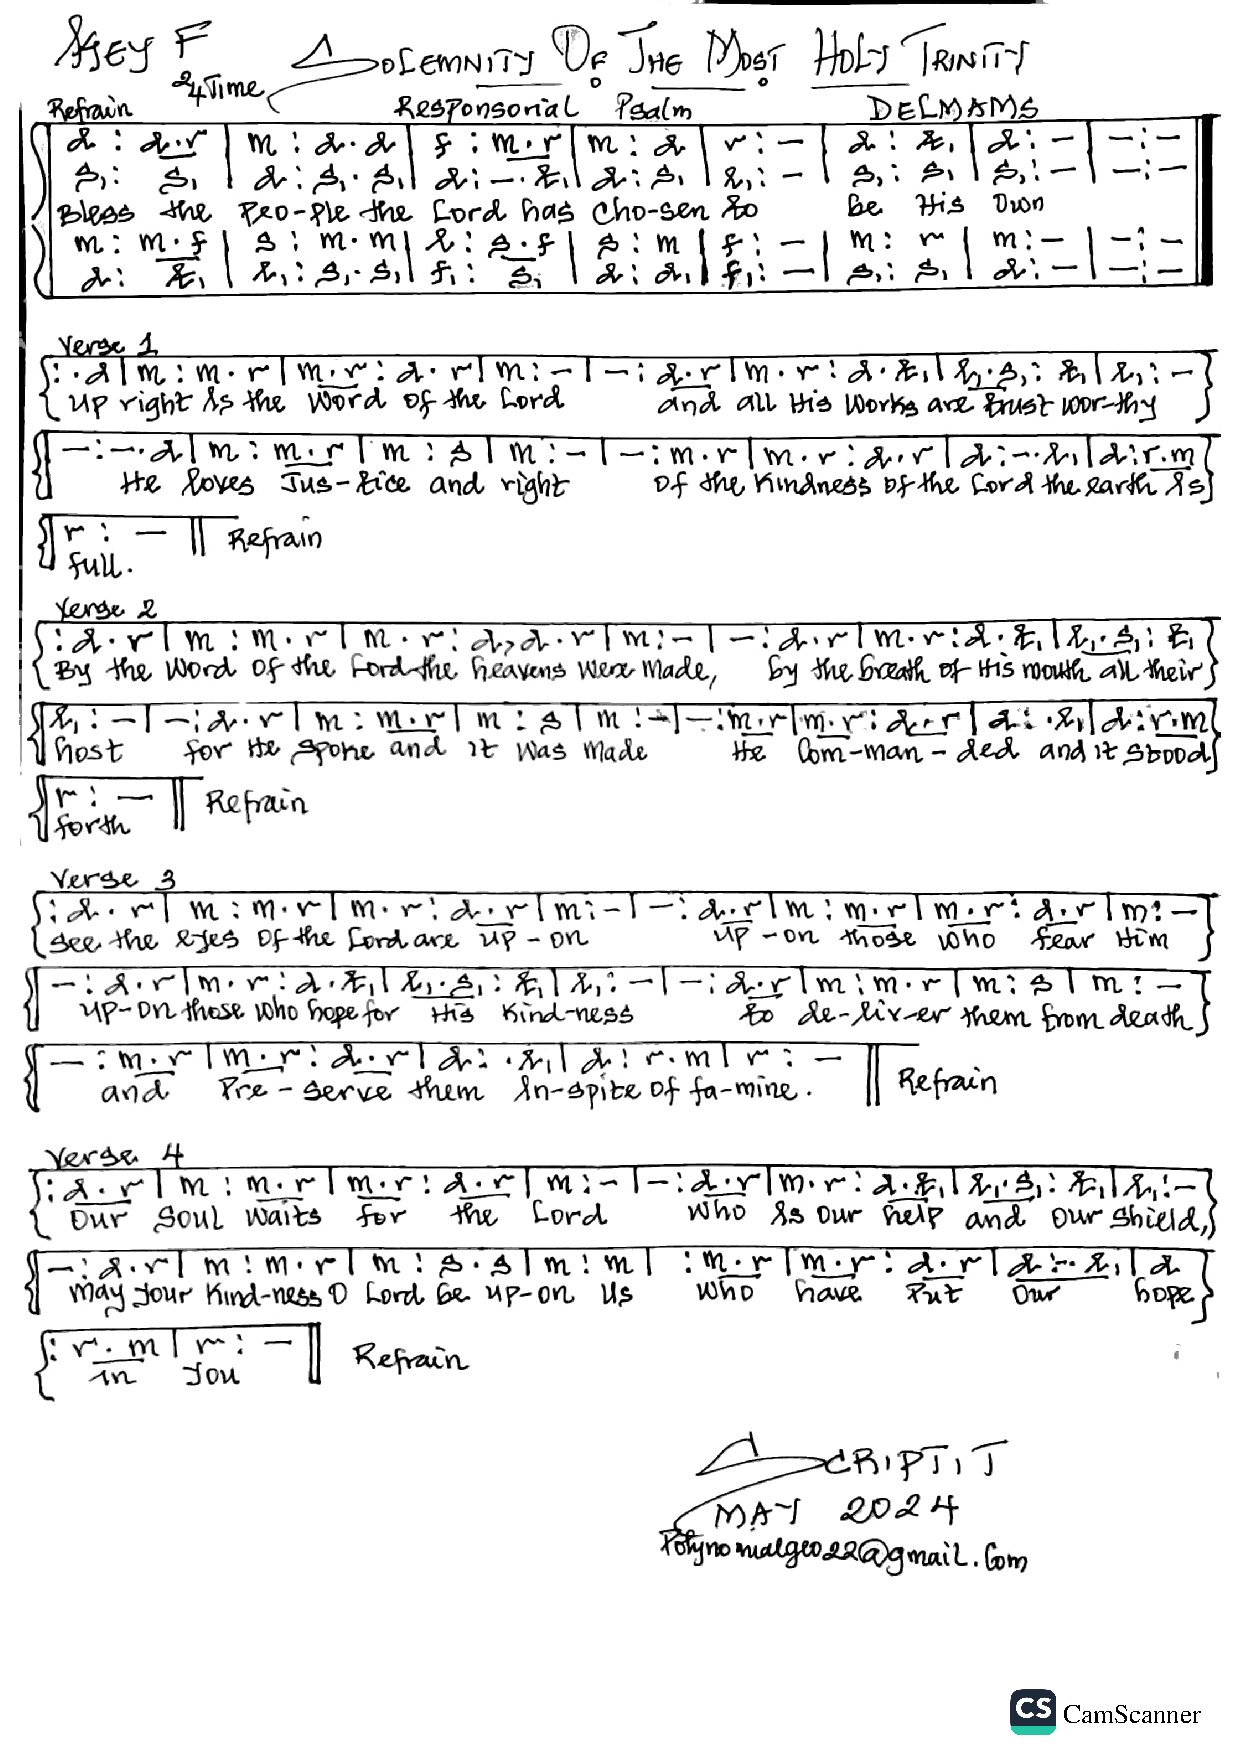 Key F
SOLEMNITY OF THE MOST HOLY TRINITY
2/4 Time
Refrain Responsorial Psalm DELMAMS
d : d.r | m : d.d | f : m.r | m : d | r : – | d : t₁ | d : – | – : –
s₁ : s₁ | d : s₁.s₁ | d : –.t₁ | d : s₁ | l₁ : – | s₁ : s₁ | s₁ : – | – : –
Bless the Peo-ple the Lord has Cho-sen to be His Own
m : m.f | s : m.m | l : s.f | s : m | f : – | m : r | m : – | – : –
d : t₁ | l₁ : s₁.s₁ | f₁ : s₁ | d : d₁ | f₁ : – | s₁ : s₁ | d : – | – : –
Verse 1
: .d | m : m.r | m.r : d.r | m : – | – : d.r | m.r : d.t₁ | l₁.s₁ : t₁ | l₁ : –
Up right is the Word of the Lord and all His Works are trust wor-thy
– : –.d | m : m.r | m : s | m : – | – : m.r | m.r : d.r | d : –.l₁ | d : r.m
He loves Jus-tice and right Of the Kindness of the Lord the earth is
r : – || Refrain
full.
Verse 2
: d.r | m : m.r | m.r : d,d.r | m : – | – : d.r | m.r : d.t₁ | l₁.s₁ : t₁
By the Word of the Lord the heavens Were made, by the breath of His mouth all their
l₁ : – | – : d.r | m : m.r | m : s | m : – | – : m.r | m.r : d.r | d : .l₁ | d : r.m
host for He spoke and it was made He Com-man-ded and it stood
r : – || Refrain
forth
Verse 3
: d.r | m : m.r | m.r : d.r | m : – | – : d.r | m : m.r | m.r : d.r | m : –
See the eyes of the Lord are up-on up-on those who fear Him
– : d.r | m.r : d.t₁ | l₁.s₁ : t₁ | l₁ : – | – : d.r | m : m.r | m : s | m : –
up-on those who hope for His Kind-ness to de-liv-er them from death
– : m.r | m.r : d.r | d : .l₁ | d : r.m | r : – || Refrain
and Pre-serve them in-spite of fa-mine.
Verse 4
: d.r | m : m.r | m.r : d.r | m : – | – : d.r | m.r : d.t₁ | l₁.s₁ : t₁ | l₁ : –
Our Soul Waits for the Lord Who is Our help and Our Shield,
– : d.r | m : m.r | m : s.s | m : m | : m.r | m.r : d.r | d : –.l₁ | d
May Your Kind-ness O Lord be up-on Us Who have Put Our hope
: r.m | r : – || Refrain
in You
SCRIPTIT
MAY 2024
Polynomialgeo22@gmail.Com
CS CamScanner